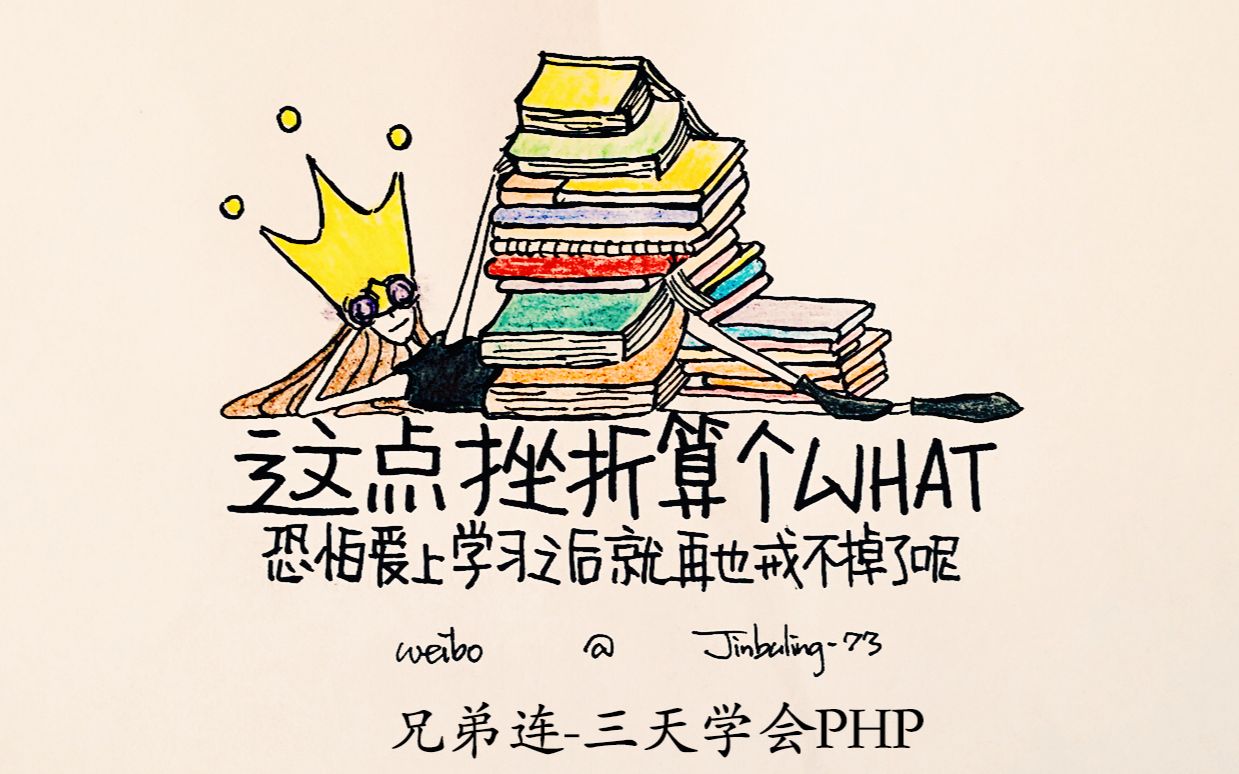 这点挫折算个WHAT
恐怕爱上学习之后就再也戒不掉了呢
weibo @ Jinbuling-73
兄弟连-三天学会PHP